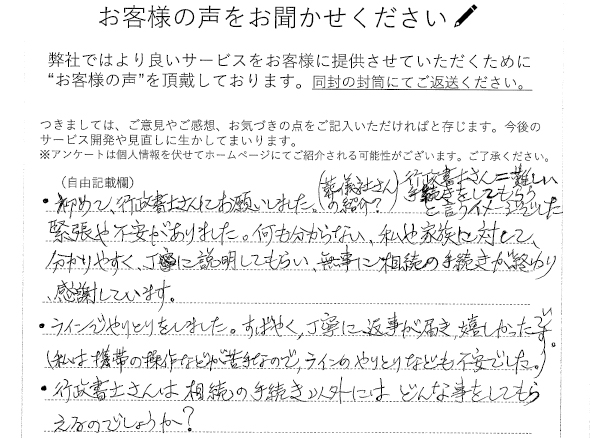 お客様の声をお聞かせください
弊社ではより良いサービスをお客様に提供させていただくために
“お客様の声”を頂戴しております。同封の封筒にてご返送ください。
つきましては、ご意見やご感想、お気づきの点をご記入いただければと存じます。今後の
サービス開発や見直しに生かしてまいります。
※アンケートは個人情報を伏せてホームページにてご紹介される可能性がございます。ご了承ください。
（自由記載欄）
・初めて、行政書士さんにお願いしました。（葬儀社さんの紹介？ 行政書士さん＝難しい手続きをしてもらうと言うイメージでした
緊張や不安がありました。何も分からない、私や家族に対して、
分かりやすく、丁寧に説明してもらい、無事に相続の手続きが終わり
、感謝しています。
・ラインでやりとりをしました。すばやく、丁寧に、返事が届き、嬉しかったです。
（私は携帯の操作などが苦手なので、ラインのやりとりなども不安でした。）
・行政書士さんは相続の手続き以外にはどんな事をしてもら
えるのでしょうか？